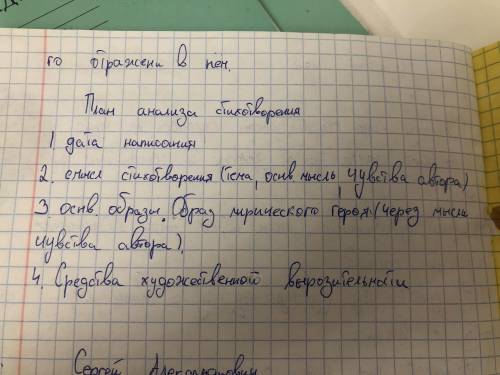 то отражени в нём.
План анализа стихотворения
1. дата написания
2. смысл стихотворения (тема, оснв мысль, чувства автора)
3. оснв. образы. Образ лирического героя. (через мысли
чувства автора).
4. Средства художественной вырозительности
Сергей Александрович